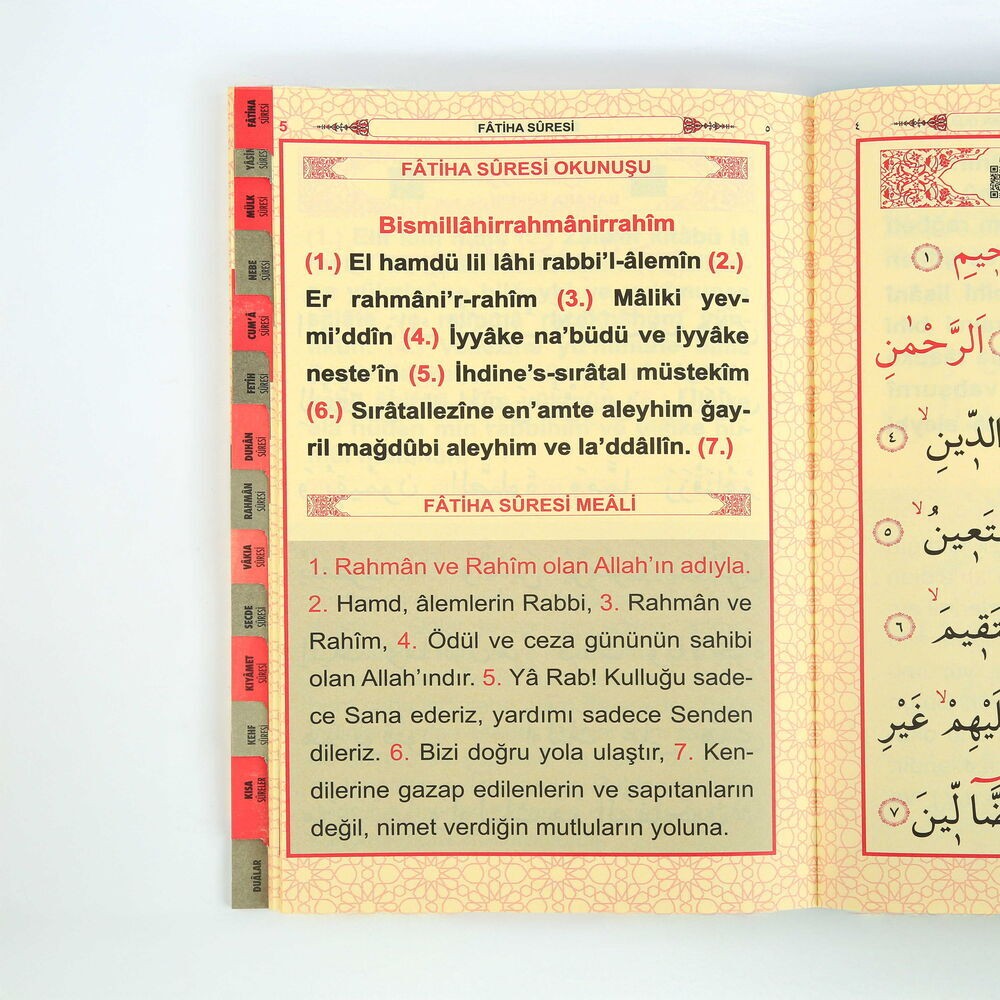 FÂTİHA SÛRESİ
YÂSİN SÛRESİ
MÜLK SÛRESİ
NEBE SÛRESİ
CUM'Â SÛRESİ
FETİH SÛRESİ
DUHÂN SÛRESİ
RAHMÂN SÛRESİ
VÂKIA SÛRESİ
SECDE SÛRESİ
KIYÂMET SÛRESİ
KEHF SÛRESİ
KISA SÛRELER
DUÂLAR
5 FÂTİHA SÛRESİ ٥
FÂTİHA SÛRESİ OKUNUŞU
Bismillâhirrahmânirrahîm
(1.) El hamdü lil lâhi rabbi’l-âlemîn (2.)
Er rahmâni’r-rahîm (3.) Mâliki yev-
mi’ddîn (4.) İyyâke na’büdü ve iyyâke
neste’în (5.) İhdine’s-sırâtal müstekîm
(6.) Sırâtallezîne en’amte aleyhim ğay-
ril mağdûbi aleyhim ve la’ddâllîn. (7.)
FÂTİHA SÛRESİ MEÂLİ
1. Rahmân ve Rahîm olan Allah’ın adıyla.
2. Hamd, âlemlerin Rabbi, 3. Rahmân ve
Rahîm, 4. Ödül ve ceza gününün sahibi
olan Allah’ındır. 5. Yâ Rab! Kulluğu sade-
ce Sana ederiz, yardımı sadece Senden
dileriz. 6. Bizi doğru yola ulaştır, 7. Ken-
dilerine gazap edilenlerin ve sapıtanların
değil, nimet verdiğin mutluların yoluna.
٤
١
اَلرَّحْمٰنِ
الدّ۪ينِۙ ٤
٥
٦
غَيْرِ
٧